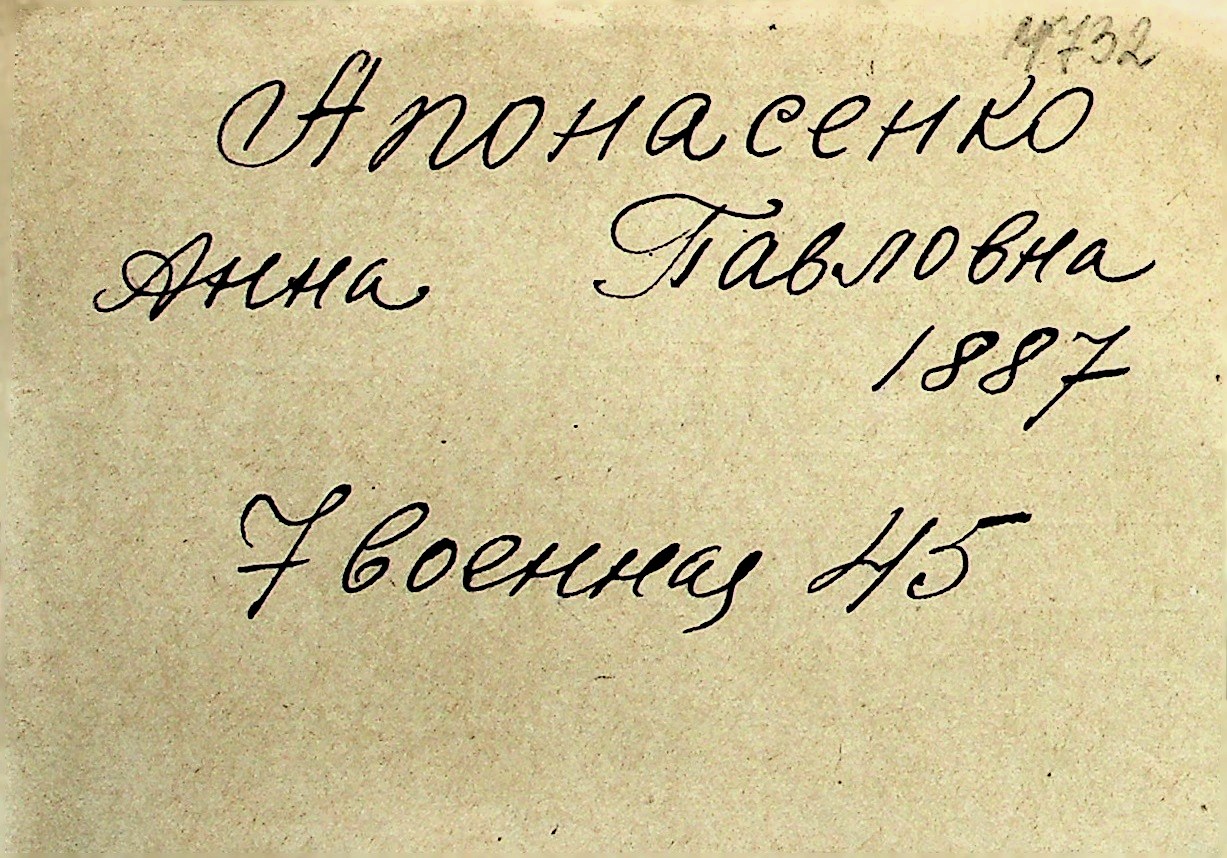 Апонасенко
Анна Павловна
1887
7 военная 45